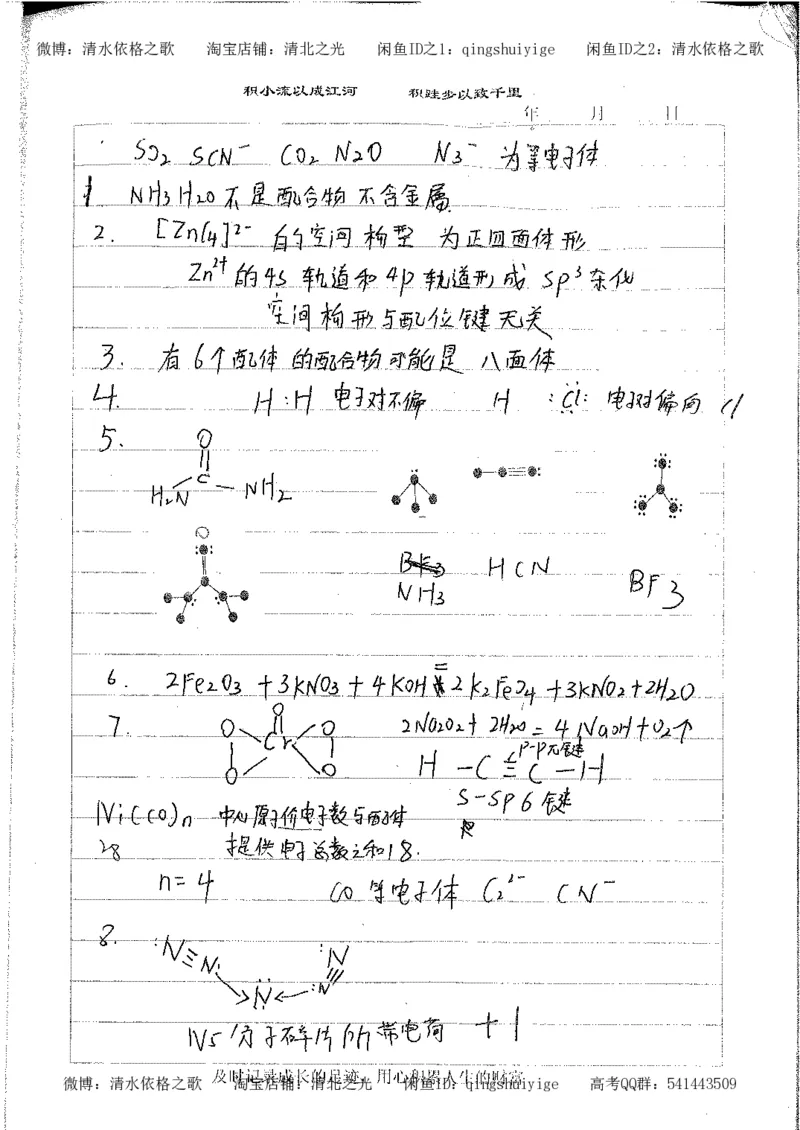 微博：清水依格之歌 淘宝店铺：清北之光 闲鱼ID之1：qingshuiyige 闲鱼ID之2：清水依格之歌
积小流以成江河 积跬步以致千里
年 月 日
SO2 SCN⁻ CO2 N2O N3⁻ 为等电子体
1 NH3 H2O 不是配合物 不含金属
2. [ZnCl4]2- 的空间构型 为正四面体形
Zn2+的4s轨道和4p轨道形成sp3杂化
空间构形与配位键无关
3. 有6个配体的配合物可能是八面体
4. H:H 电子对不偏 H :Cl: 电子对偏向Cl
5.
O
H2N C NH2
NH3 HCN BF3
6. 2Fe2O3+3KNO3+4KOH=2K2FeO4+3KNO2+2H2O
7. 2Na2O2+2H2O=4NaOH+O2↑
O O O Cr O O
p-pπ键
H-C≡C-H
s-sp δ键
Ni(CO)n 中心原子价电子数与配体
28 提供电子总数之和18.
n=4 CO等电子体 C2²⁻ CN⁻
8. :N≡N: N :N :N
N5 分子碎片所带电荷 +1
及时记录成长的足迹，用心积累人生的财富
微博：清水依格之歌 淘宝店铺：清北之光 闲鱼ID：qingshuiyige 高考QQ群：541443509